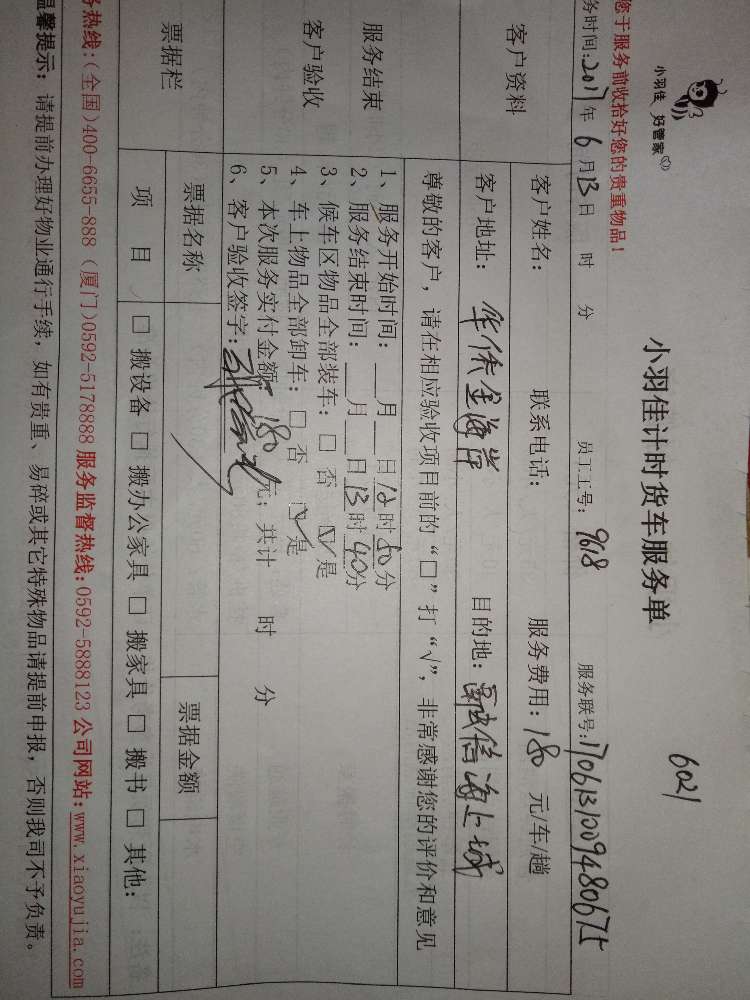 6021
小羽佳 好管家
小羽佳计时货车服务单
您于服务前收拾好您的贵重物品！
务时间:2017年6月13日 时 分 员工工号: 9618 服务联号:1706131009480675
客户资料 客户姓名: 联系电话: 服务费用:180元/车/趟
客户地址: 华侨金海岸 目的地: 海上城
服务结束 客户验收
尊敬的客户，请在相应验收项目前的“□”打“√”，非常感谢您的评价和意见
1、服务开始时间: __月__日12时50分
2、服务结束时间: __月__日13时40分
3、候车区物品全部装车: □ 否 ☑ 是
4、车上物品全部卸车: □ 否 ☑ 是
5、本次服务实付金额 180元; 共计 时 分
6、客户验收签字:
票据栏 票据名称 票据金额
项 目 □ 搬设备 □ 搬办公家具 □ 搬家具 □ 搬书 □ 其他:
务热线:(全国)400-6655-888 (厦门)0592-5178888 服务监督热线:0592-5888123 公司网站:www.xiaoyujia.com
温馨提示: 请提前办理好物业通行手续，如有贵重、易碎或其它特殊物品请提前申报，否则我司不予负责。